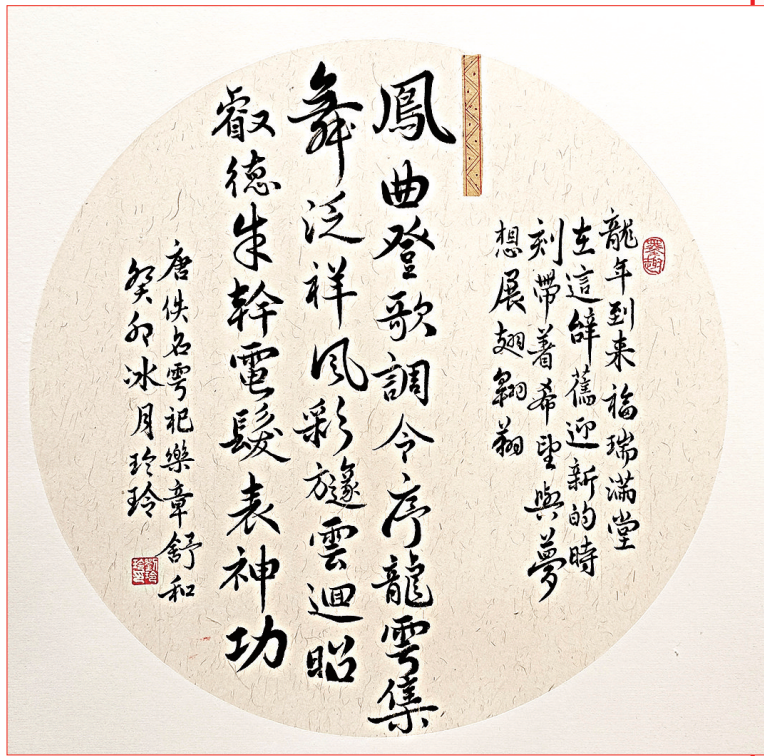 龍年到来福瑞滿堂
在這辞舊迎新的時
刻帶着希望與夢
想展翅翱翔
鳳曲登歌調令序龍雩集
舞泛祥風彩旞雲迴昭
叡德朱幹電髮表神功
唐佚名雩祀樂章舒和
癸卯冰月玲玲